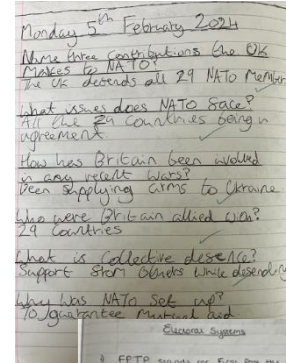 Monday 5th February 2024
Name three contributions the UK
Makes to NATO?
The UK defends all 29 NATO Member
What issues does NATO face?
All the 29 Countries being in
agreement.
How has Britain been involved
in any recent wars?
Been Supplying arms to Ukraine
Who were Britain allied with?
29 Countries
What is Collective defence?
Support from Others while defending
Why Was NATO Set up?
To guarantee Mutual aid
Electoral Systems
FPTP stands for First Past the